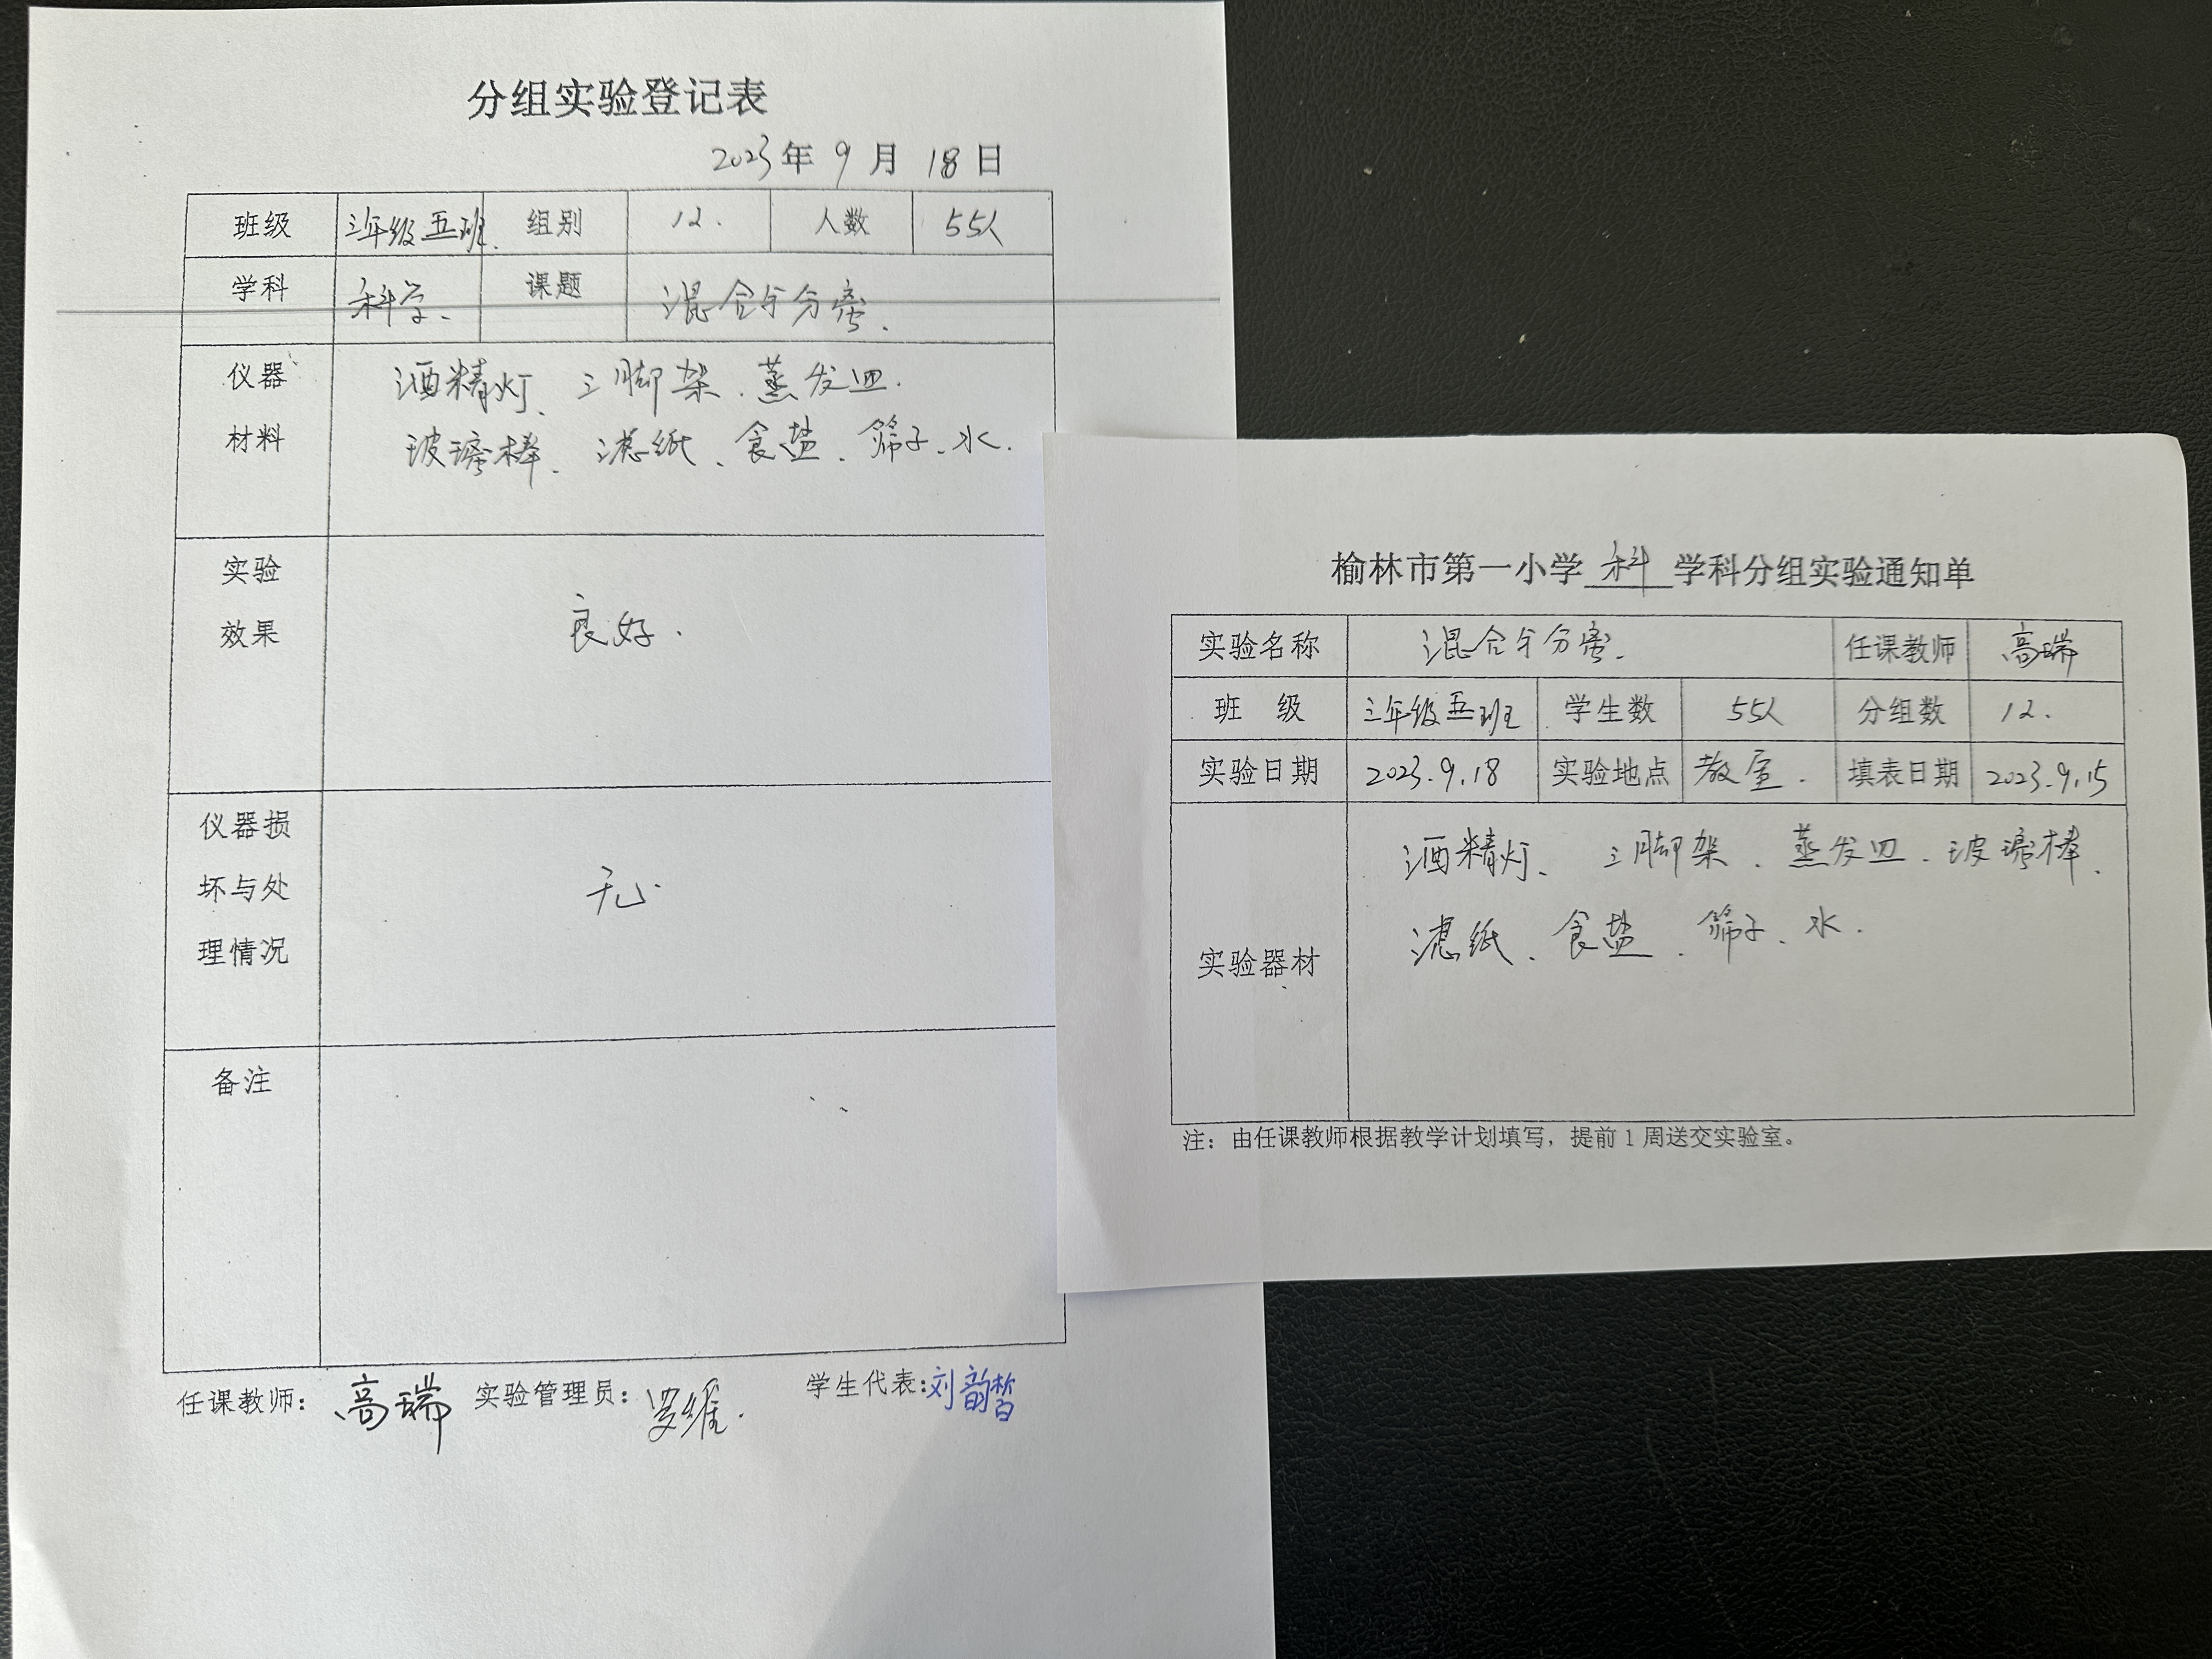 分组实验登记表
2023年 9 月 18 日
班级 三年级五班. 组别 12. 人数 55人
学科 科学. 课题 混合与分离.
仪器 酒精灯、三脚架、蒸发皿.
材料 玻璃棒、滤纸、食盐、筛子、水.
实验
效果
良好.
仪器损
坏与处
理情况
无.
备注
任课教师: 高瑞 实验管理员: 罗维. 学生代表:刘韵皙
榆林市第一小学 科 学科分组实验通知单
实验名称 混合与分离. 任课教师 高瑞
班 级 三年级五班 学生数 55人 分组数 12.
实验日期 2023.9.18 实验地点 教室. 填表日期 2023.9.15
实验器材
酒精灯、三脚架、蒸发皿、玻璃棒、
滤纸、食盐、筛子、水.
注：由任课教师根据教学计划填写，提前 1 周送交实验室。